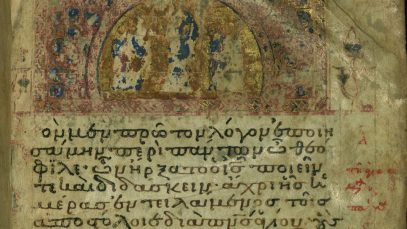 ὸν μὲν πρῶτον λόγον ἐποιη
σάμην περὶ πάντων ὦ θεό
φιλε, ὧν ἤρξατο ὁ ις ποιεῖν
τε καὶ διδάσκειν. ἄχρι ἧς ἡ
μέρας ἐντειλάμενος τοῖς
ἀποστόλοις διὰ πνς ἁγίου οὓς